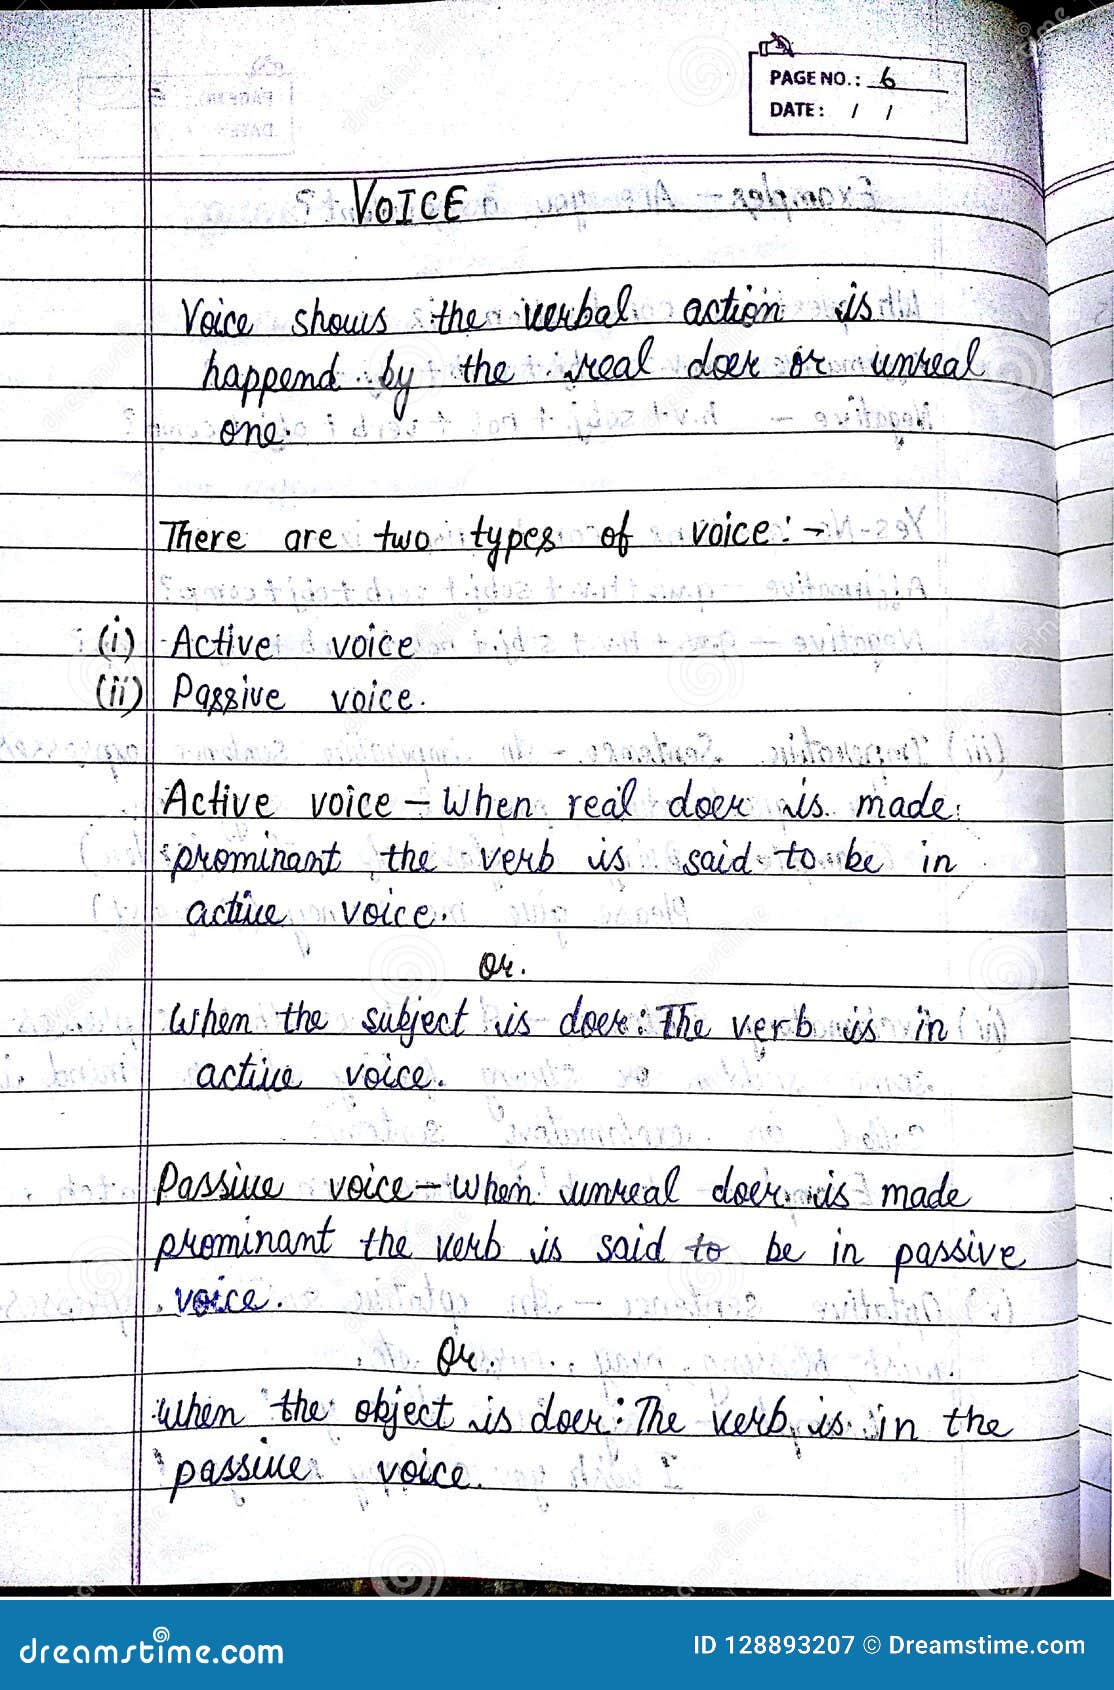 PAGE NO.: 6
DATE: / /
VOICE
Voice shows the verbal action is
happend by the real doer or unreal
one.
There are two types of voice:-
(i) Active voice
(ii) Passive voice.
Active voice - When real doer is made
prominant the verb is said to be in
active voice.
or.
When the subject is doer: The verb is in
active voice.
Passive voice - When unreal doer is made
prominant the verb is said to be in passive
voice.
Or.
When the object is doer: The verb is in the
passive voice.
dreamstime.com
ID 128893207 © Dreamstime.com